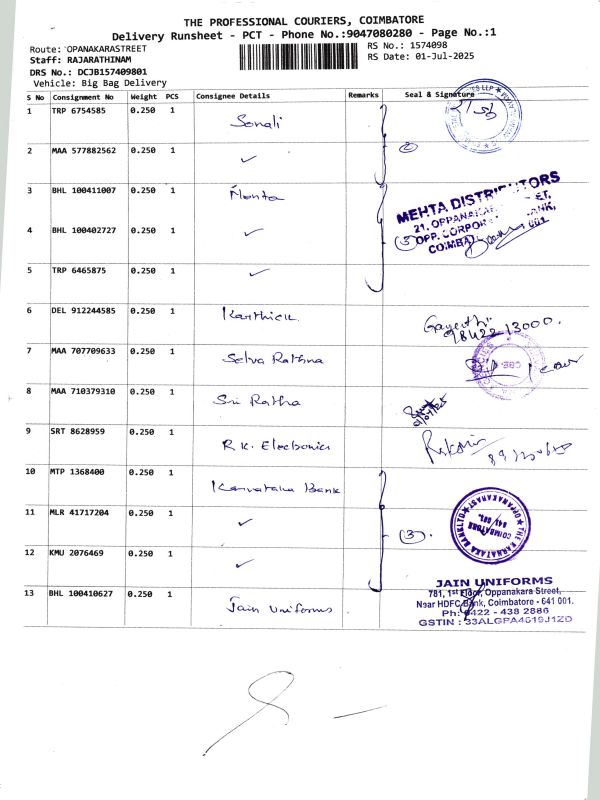 THE PROFESSIONAL COURIERS, COIMBATORE
Delivery Runsheet - PCT - Phone No.:9047080280 - Page No.:1
Route: OPANAKARASTREET
RS No.: 1574098
Staff: RAJARATHINAM
RS Date: 01-Jul-2025
DRS No.: DCJB157409801
Vehicle: Big Bag Delivery
S No Consignment No Weight PCS Consignee Details Remarks Seal & Signature
1 TRP 6754585 0.250 1 Sonali
2 MAA 577882562 0.250 1 ✓ (2)
3 BHL 100411007 0.250 1 Mehta
MEHTA DISTRIBUTORS
21, OPPANAKAR ET,
4 BHL 100402727 0.250 1 ✓ (3)
OPP. CORPOR BANK,
COIMBA 001
5 TRP 6465875 0.250 1 ✓
6 DEL 912244585 0.250 1 Karthick
Gayathri
98422 13000.
7 MAA 707709633 0.250 1 Selva Rathna
8 MAA 710379310 0.250 1 Sri Ratha
9 SRT 8628959 0.250 1 R.K. Electronics
10 MTP 1368400 0.250 1 Karnataka Bank
11 MLR 41717204 0.250 1 ✓ (3)
THE KARNATAKA BANK LTD
OPPANAKARAST
COIMBATORE
641 001.
12 KMU 2076469 0.250 1 ✓
13 BHL 100410627 0.250 1 Jain Uniforms
JAIN UNIFORMS
781, 1st Floor, Oppanakara Street,
Near HDFC Bank, Coimbatore - 641 001.
Ph: 0422 - 438 2886
GSTIN : 33ALGPA4619J1ZD